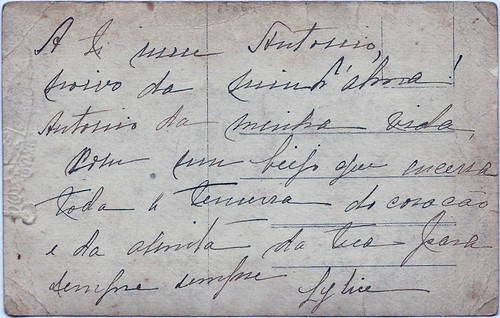 A ti meu Antonio,
noivo da minh'alma!
Antonio da minha vida,
Com um beijo que encerra
toda a ternura do coração
e da alminha da tua para
sempre sempre